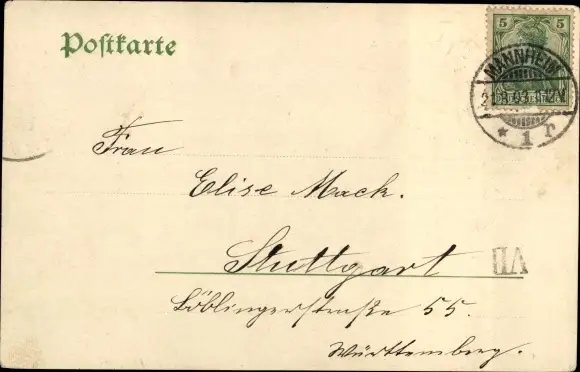 Postkarte
5 5
MANNHEIM
* 1 r
Frau
Elise Mack.
Stuttgart
VII
Böblingerstraße 55.
Württemberg.